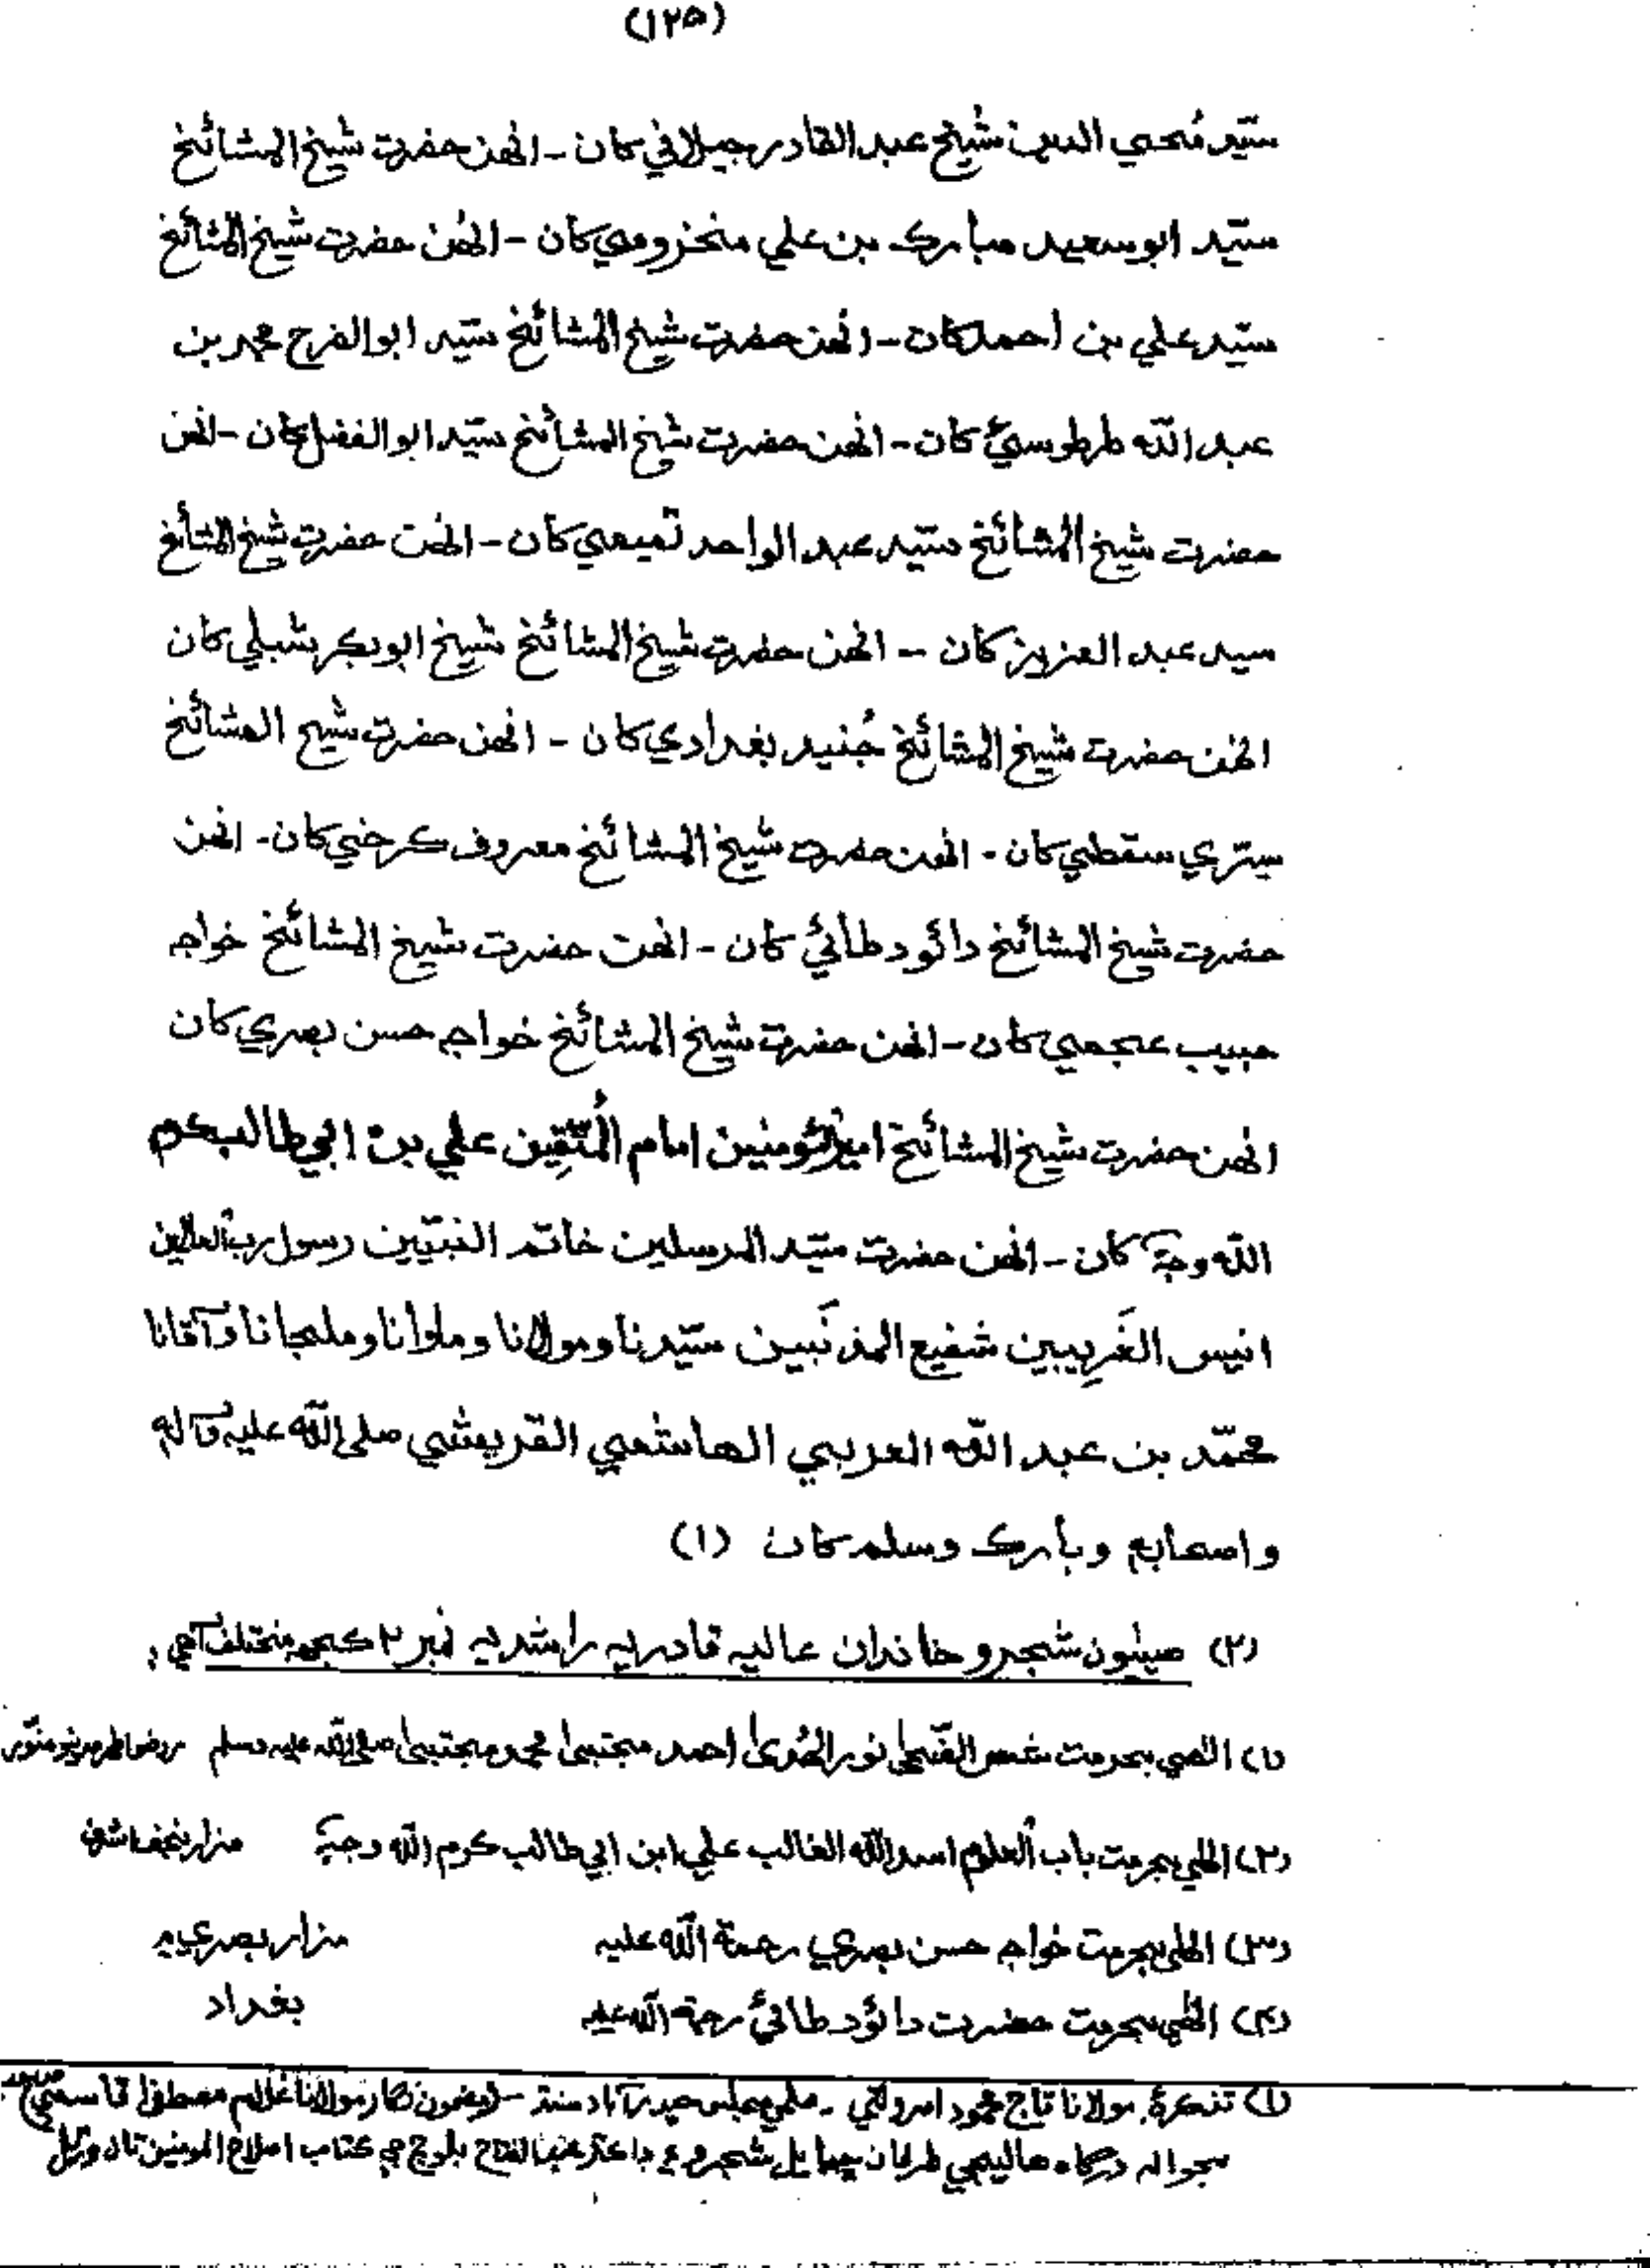 (١٢٥)
سيّد مُحي الدين شيخ عبد القادر جيلاني کان - انهن حضرت شيخ المشائخ
سيّد ابو سعيد مبارک بن علي مخزومي کان - انهن حضرت شيخ المشائخ
سيّد علي بن احمد کان - انهن حضرت شيخ المشائخ سيّد ابو الفرح محمد بن
عبد الله طرطوسيؒ کان - انهن حضرت شيخ المشائخ سيّد ابو الفضل کان - انهن
حضرت شيخ المشائخ سيّد عبد الواحد تميمي کان - انهن حضرت شيخ المشائخ
سيد عبد العزيز کان - انهن حضرت شيخ المشائخ شيخ ابوبکر شبلي کان
انهن حضرت شيخ المشائخ جُنيد بغدادي کان - انهن حضرت شيخ المشائخ
سِرّي سقطي کان - انهن حضرت شيخ المشائخ معروف ڪرخي کان - انهن
حضرت شيخ المشائخ دائود طائي کان - انهن حضرت شيخ المشائخ خواجه
حبيب عجمي کان - انهن حضرت شيخ المشائخ خواجه حسن بصري کان
انهن حضرت شيخ المشائخ امير المؤمنين امام المُتّقِين علي بن ابي طالب ڪرم
الله وجهہٗ کان - انهن حضرت سيّد المرسلين خاتم النبيّين رسول رب العالمين
انيس الغَرِيبين شفيع المذنَبين سيّدنا و مولانا و ماوانا و ملجانا و آقانا
محمّد بن عبد الله العربي الهاشمي القريشي صلي الله عليہ و آلہٖ
و اصحابہٖ و بارک وسلم کان (١)
(٢) شجرو خاندان عاليه قادريه راشديه نمبر ٢ ڪجهه مختلف آهي :
(١) الٰهي بحرمت شمس الضحيٰ نور الهُديٰ احمد مجتبيٰ محمد مجتبيٰ صلي الله عليه وسلم منوره
(٢) الٰهي بحرمت باب العلوم اسد الله الغالب علي ابن ابي طالب ڪرم الله وجهہٗ مزار نجف اشرف
(٣) الٰهي بحرمت خواجه حسن بصري رحمة الله عليه مزار بصري ۾
(٤) الٰهي بحرمت حضرت دائود طائيؒ رحمة الله عليه بغداد
(١) تذڪرهٔ مولانا تاج محمود امروٽي - علمي مجلس حيدرآباد سنڌ - مضمون نگار مولانا غلام مصطفيٰ قاسمي
بحواله درگاه هاليجي طرفان ڇپايل شجرو ۽ ڊاڪٽر عبد الفتاح بلوچ جي ڪتاب اصلاح المومنين تان ورتل